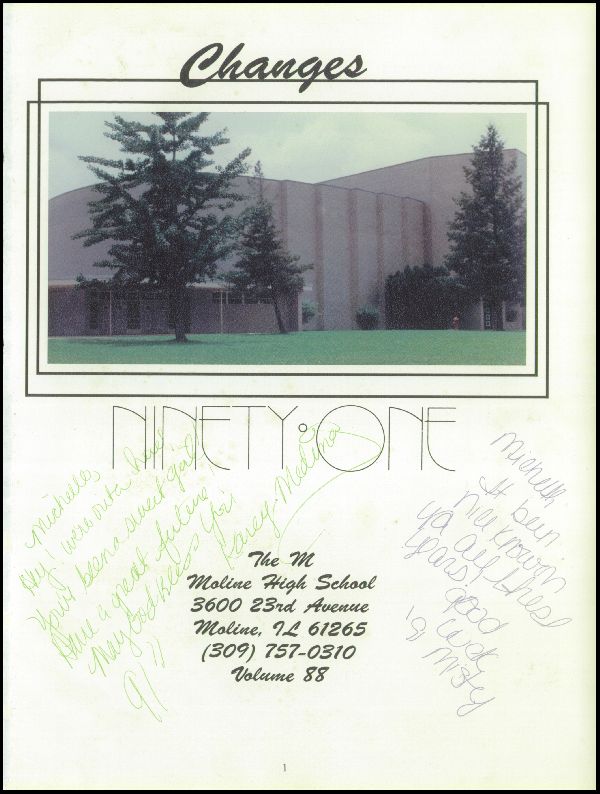 Changes
NINETY·ONE
Michelle,
Hey! were outa here
You've been a sweet girl
Have a great future
May God Bless You
Karey Medina
91'
Michelle
It been
nice known
ya all these
years.
good
luck
'91 Misty
The M
Moline High School
3600 23rd Avenue
Moline, IL 61265
(309) 757-0310
Volume 88
1